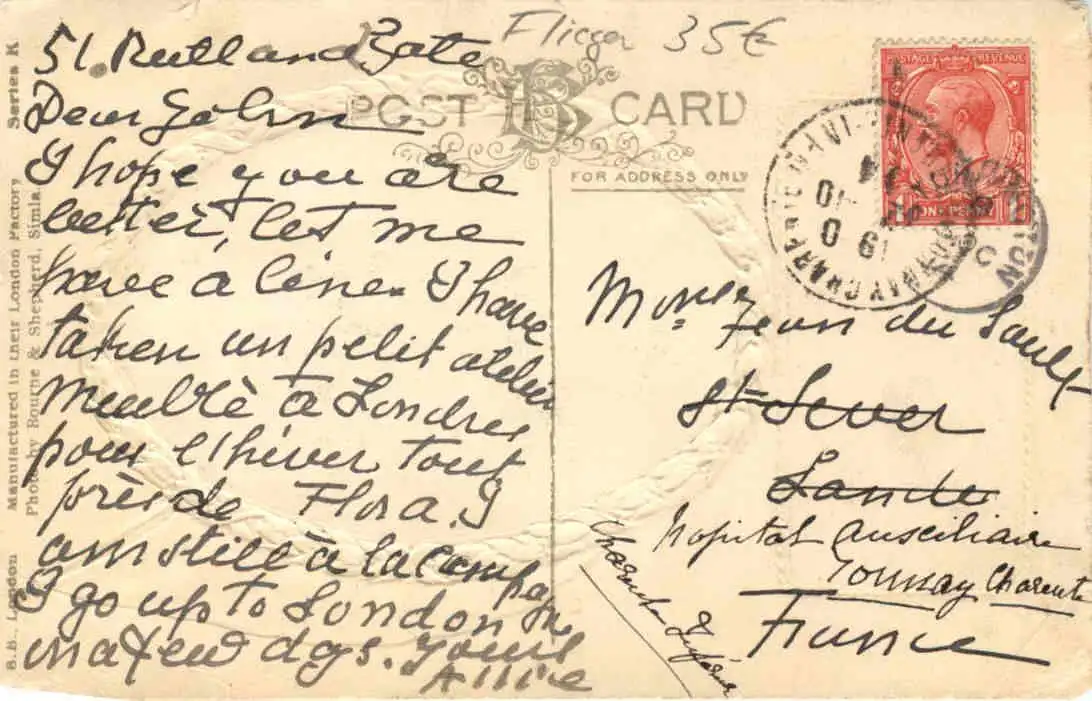 Flieger 35€
51. Rutland Gate
POST CARD
FOR ADDRESS ONLY
POSTAGE REVENUE
ONE PENNY
Dear John
I hope you are
better, let me
have a line. I have
taken un petit atelier
meublè à Londres
pour l'hiver tout
près de Flora. I
am still à la campagne
I go up to London
in a few dys. Yours
Allie
Monsr Jean du Sault
St Sever
Landes
Hopital Auxciliaire
Tonnay Charente
Charente Inférieure
France
B.B., London Manufactured in their London Factory Series K
Photo by Bourne & Shepherd, Simla.